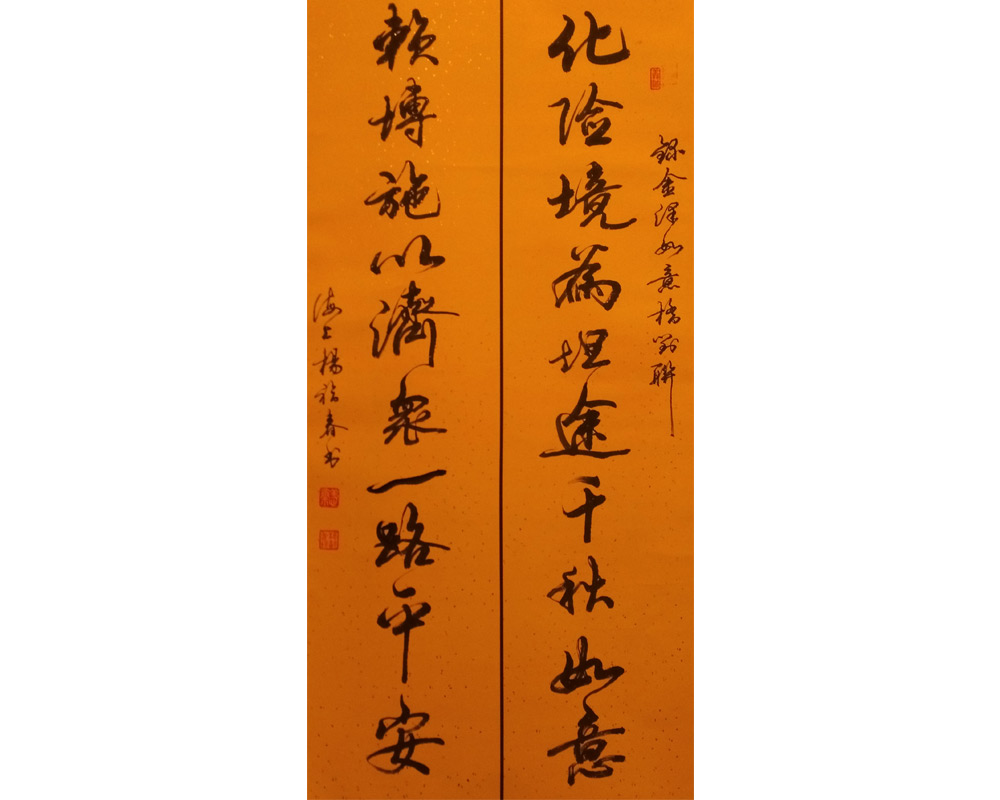 錄金澤如意橋對聯
化險境為坦途千秋如意
賴博施以濟衆一路平安
海上楊祖春书